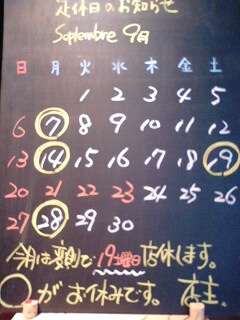 定休日のお知らせ
Septembre 9月
日 月 火 水 木 金 土
1 2 3 4 5
6 7 8 9 10 11 12
13 14 15 16 17 18 19
20 21 22 23 24 25 26
27 28 29 30
今月は変則で19土曜日店休します。
○がお休みです。 店主.